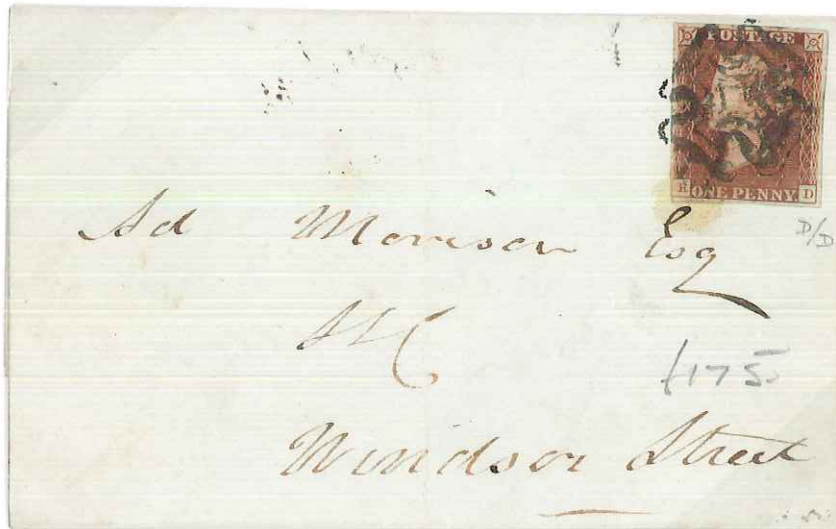 POSTAGE
R D
ONE PENNY
D/D
Ad Morison Esq
£175
Windsor Street